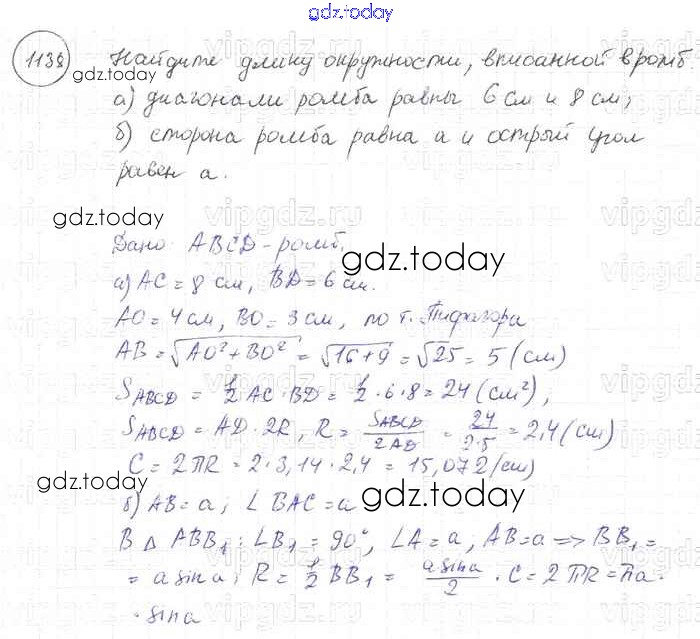 gdz.today
1138 Найдите длину окружности, вписанной в ромб.
gdz.today
а) диагонали ромба равны 6 см и 8 см;
б) сторона ромба равна a и острый угол
равен a.
gdz.today
Дано: ABCD - ромб.
gdz.today
а) AC = 8 см, BD = 6 см.
AO = 4 см, BO = 3 см, по т. Пифагора
AB = √AO² + BO² = √16+9 = √25 = 5 (см)
S ABCD = 1/2 AC · BD = 1/2 · 6 · 8 = 24 (см²),
S ABCD = AD · 2R, R = S ABCD / 2AD = 24 / 2·5 = 2,4 (см)
C = 2ПR = 2 · 3,14 · 2,4 = 15,072 (см)
gdz.today
gdz.today
б) AB = a; ∠ BAC = a
В △ ABB₁: ∠B₁ = 90°, ∠A = a, AB = a => BB₁ =
= a sin a; R = 1/2 BB₁ = a sin a / 2 · C = 2ПR = Пa ·
· sin a